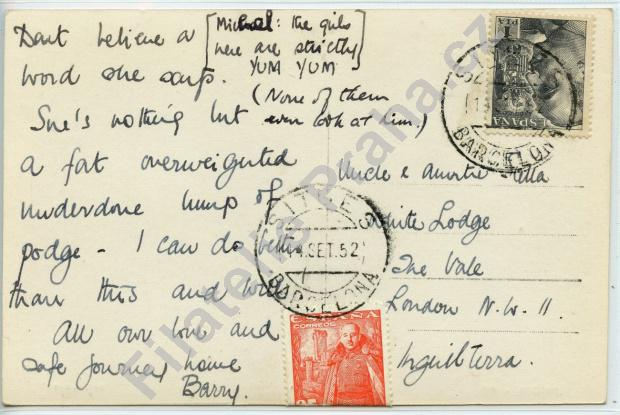 Don't believe a
word she says.
[Michael: the girls
here are strictly
YUM YUM]
(None of them
even look at him.)
She's nothing but
a fat overweighted
underdone lump of
podge - I can do better
than this and
All our love and
safe journey home
Barry.
Uncle & Auntie
White Lodge
The Vale
London N.W. 11.
Inguilterra.
1
PTA
ESPAÑA
BARCELONA
SITGES
4.SET.52
BARCELONA
ESPAÑA
CORREOS
Filatelie Praha.cz